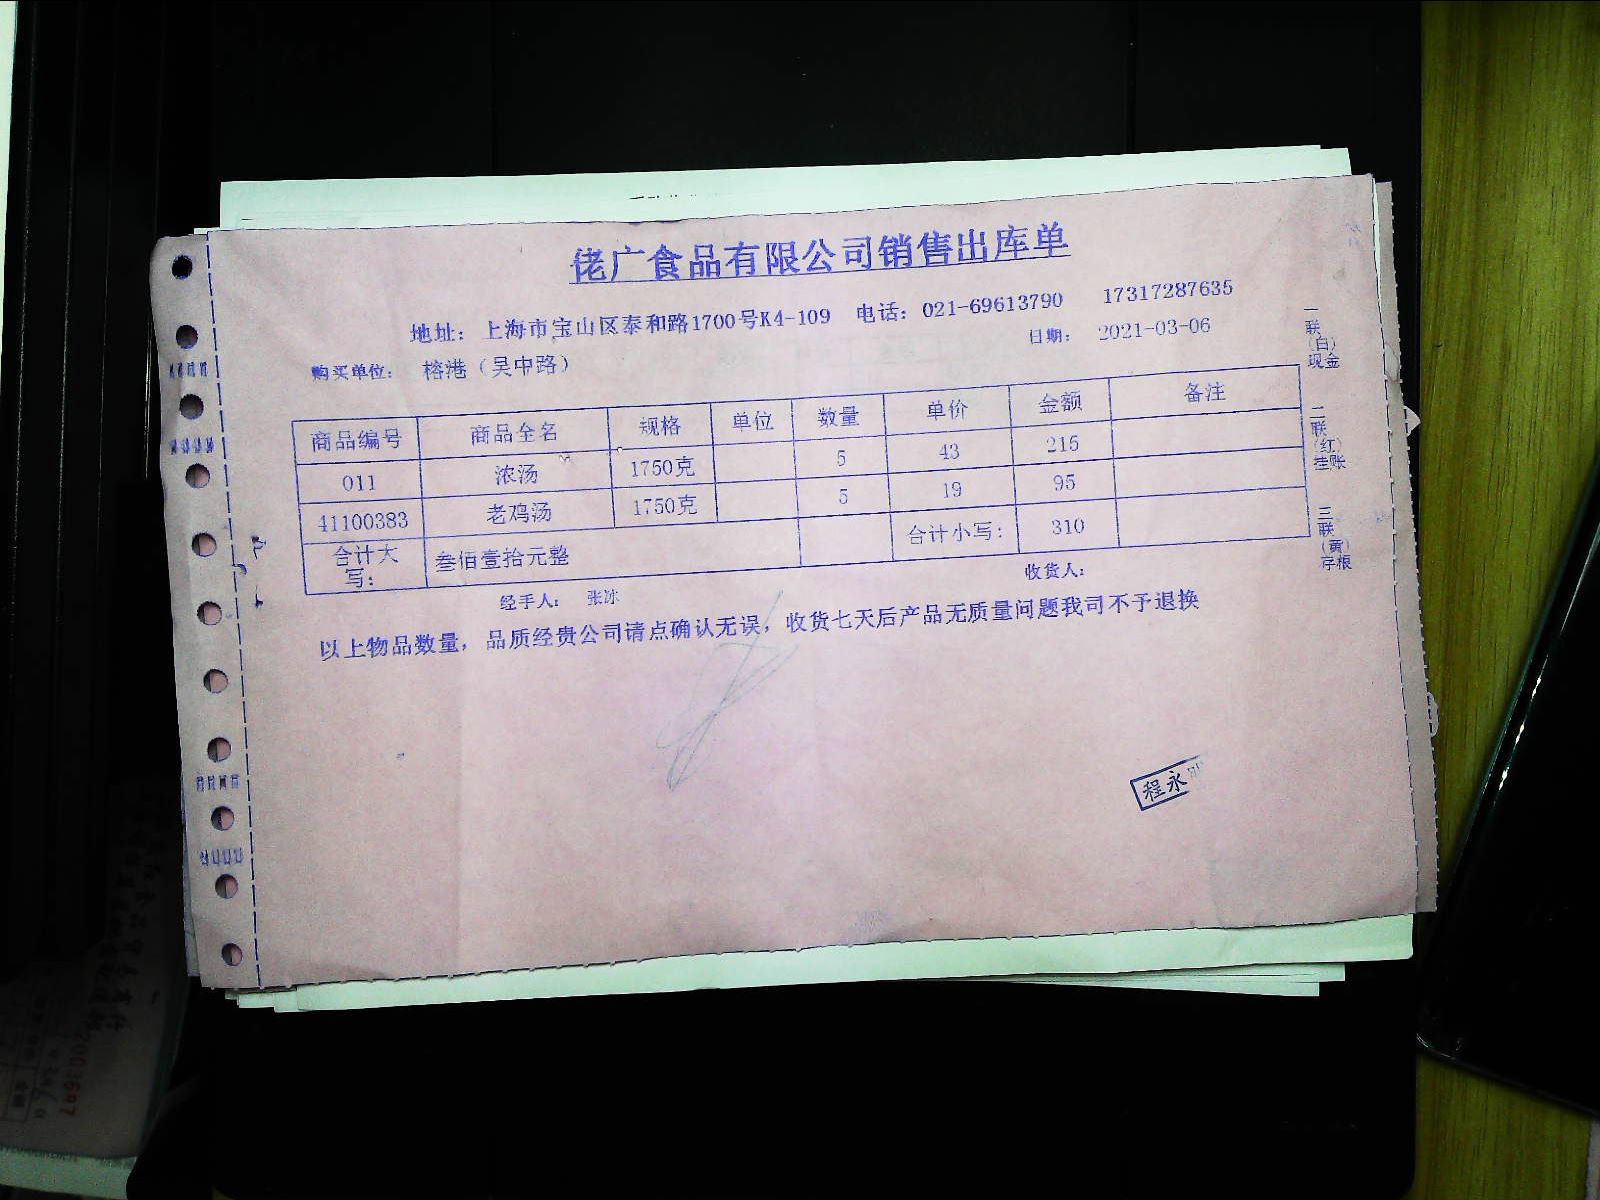 佬广食品有限公司销售出库单
地址: 上海市宝山区泰和路1700号K4-109 电话: 021-69613790 17317287635
购买单位: 榕港（吴中路） 日期: 2021-03-06
商品编号 商品全名 规格 单位 数量 单价 金额 备注
011 浓汤 1750克 5 43 215
41100383 老鸡汤 1750克 5 19 95
合计大写: 叁佰壹拾元整 合计小写: 310
经手人: 张冰 收货人:
以上物品数量, 品质经贵公司请点确认无误, 收货七天后产品无质量问题我司不予退换
一联(白)现金
二联(红)挂账
三联(黄)存根
程永
2003697